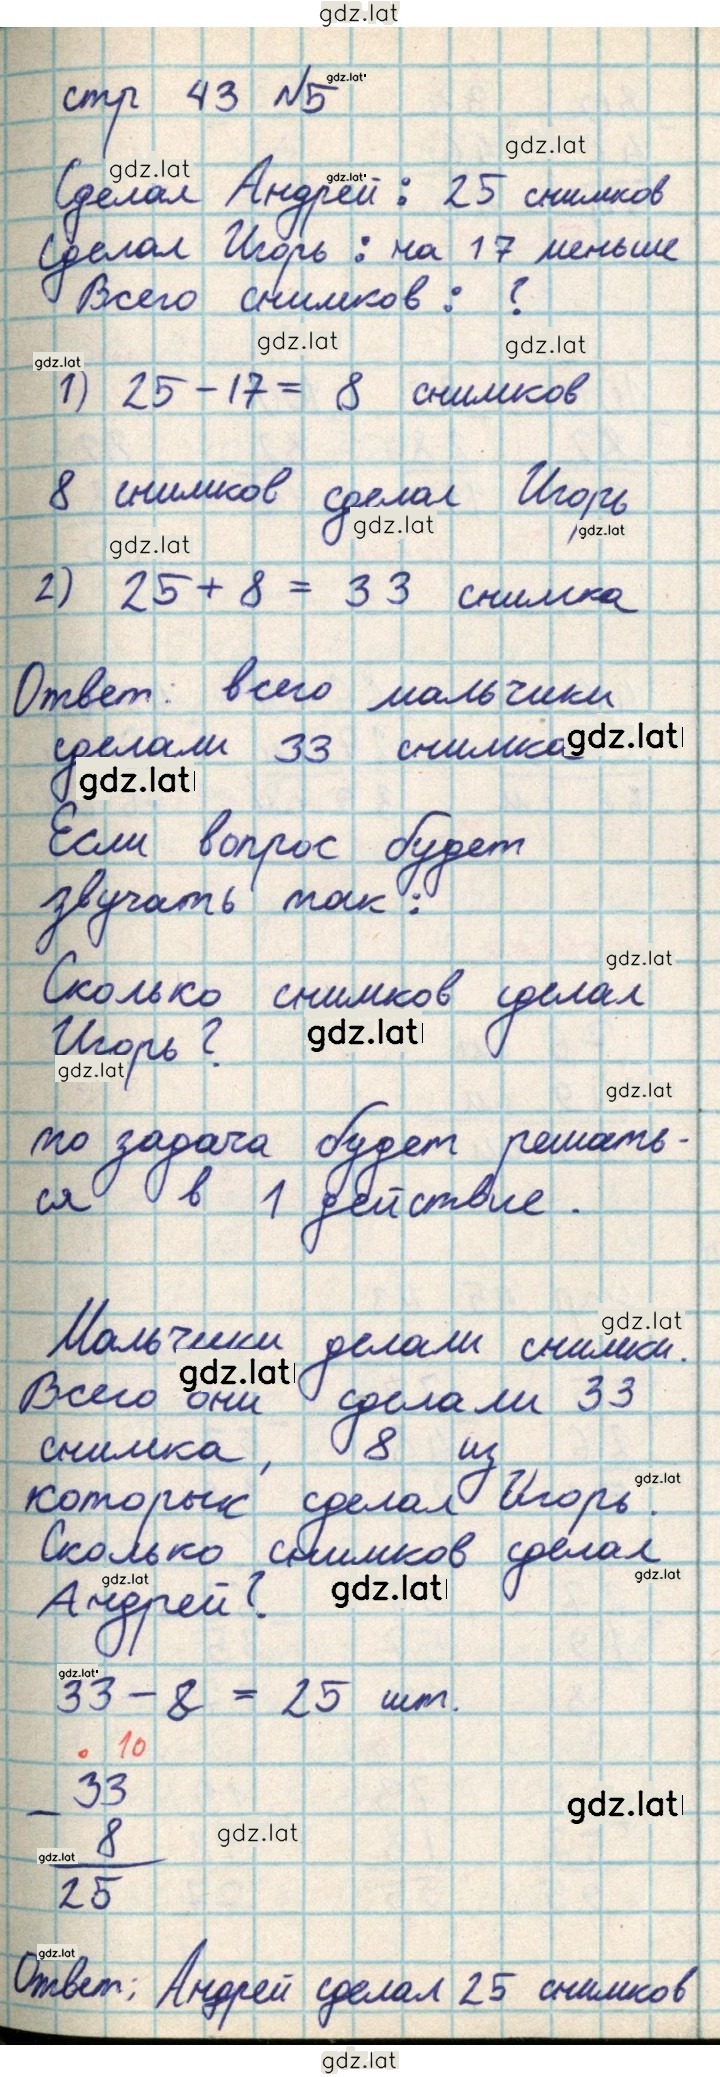 gdz.lat
стр 43 №5
Сделал Андрей: 25 снимков
Сделал Игорь: на 17 меньше
Всего снимков: ?
1) 25 - 17 = 8 снимков
8 снимков сделал Игорь
2) 25 + 8 = 33 снимка
Ответ: всего мальчики
сделали 33 снимка
Если вопрос будет
звучать так:
Сколько снимков сделал
Игорь?
то задача будет решать-
ся в 1 действие.
Мальчики делали снимки.
Всего они сделали 33
снимка, 8 из
которых сделал Игорь.
Сколько снимков сделал
Андрей?
33 - 8 = 25 шт.
. 10
- 33
8
25
Ответ: Андрей сделал 25 снимков
gdz.lat